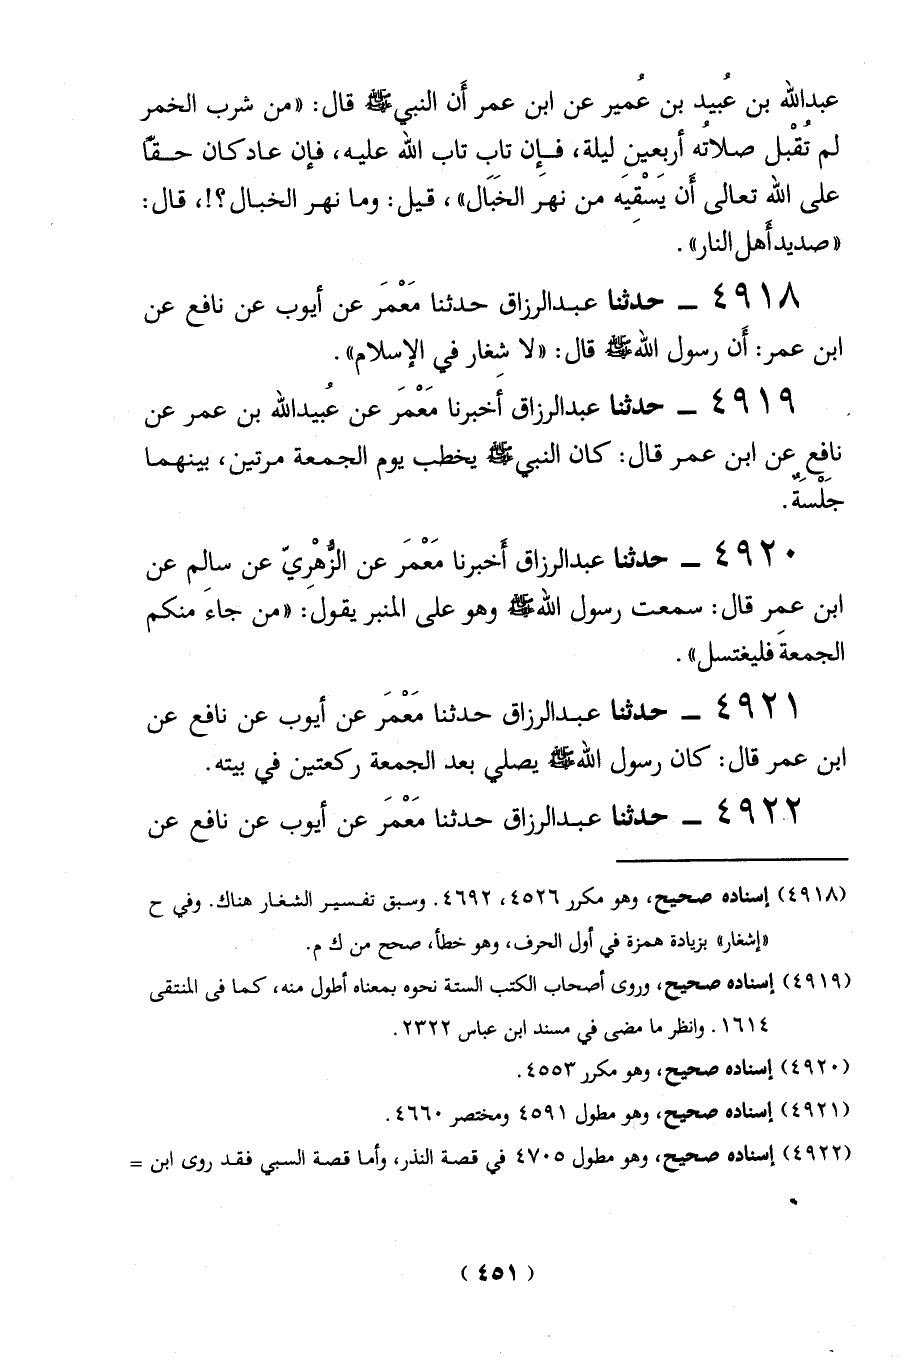 عبدالله بن عُبيد بن عُمير عن ابن عمر أَن النبي ﷺ قال: «من شرب الخمر
لم تُقْبل صلاتُه أربعين ليلة، فـإن تاب تاب الله عليه، فإن عاد كان حـقـّاً
على الله تعالى أَن يَسْقِيَه من نهر الخَبَال»، قيل: وما نهر الخبال؟!، قال:
«صديد أَهل النار».
٤٩١٨ ــ حدثنا عبدالرزاق حدثنا مَعْمَر عن أيوب عن نافع عن
ابن عمر: أَن رسول الله ﷺ قال: «لا شِغار في الإسلام».
٤٩١٩ ــ حدثنا عبدالرزاق أخبرنا مَعْمَر عن عُبيدالله بن عمر عن
نافع عن ابن عمر قال: كان النبي ﷺ يخطب يوم الجمعة مرتين، بينهما
جَلْسَةٌ.
٤٩٢٠ ــ حدثنا عبدالرزاق أَخبرنا مَعْمَر عن الزُّهْرِيّ عن سالم عن
ابن عمر قال: سمعت رسول الله ﷺ وهو على المنبر يقول: «من جاءَ منكم
الجمعةَ فليغتسل».
٤٩٢١ ــ حدثنا عبدالرزاق حدثنا مَعْمَر عن أيوب عن نافع عن
ابن عمر قال: كان رسول الله ﷺ يصلي بعد الجمعة ركعتين في بيته.
٤٩٢٢ ــ حدثنا عبدالرزاق حدثنا مَعْمَر عن أيوب عن نافع عن
(٤٩١٨) إسناده صحيح، وهو مكرر ٤٥٢٦، ٤٦٩٢. وسبق تفسير الشغار هناك. وفي ح
«إشغار» بزيادة همزة في أول الحرف، وهو خطأ، صحح من ك م.
(٤٩١٩) إسناده صحيح، وروى أصحاب الكتب الستة نحوه بمعناه أطول منه، كما فى المنتقى
١٦١٤. وانظر ما مضى في مسند ابن عباس ٢٣٢٢.
(٤٩٢٠) إسناده صحيح، وهو مكرر ٤٥٥٣.
(٤٩٢١) إسناده صحيح، وهو مطول ٤٥٩١ ومختصر ٤٦٦٠.
(٤٩٢٢) إسناده صحيح، وهو مطول ٤٧٠٥ في قصة النذر، وأما قصة السبي فقد روى ابن =
(٤٥١)